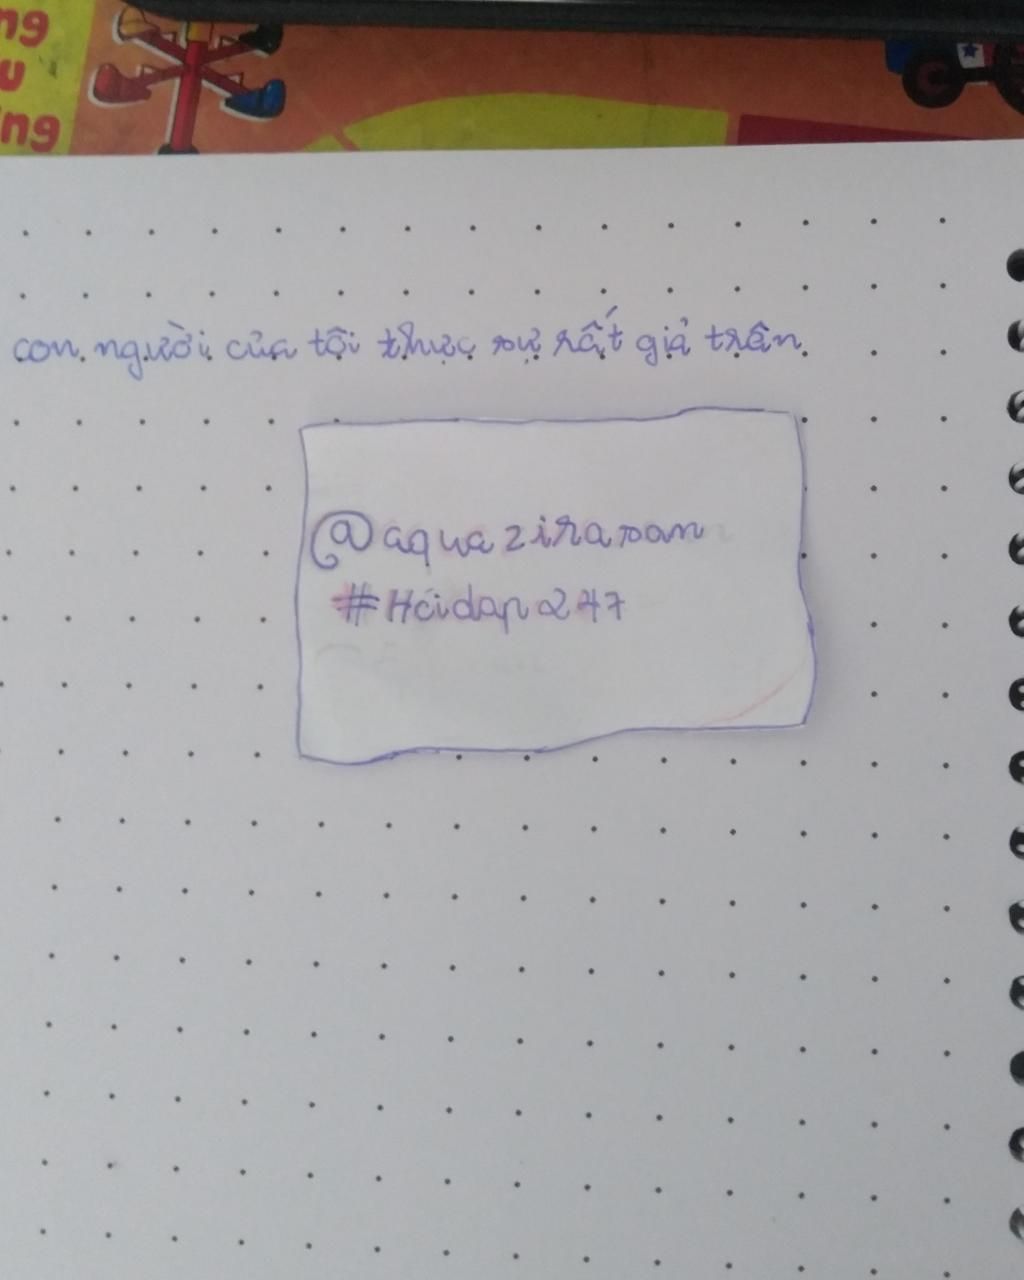 ng
u
ng
con người của tôi thực sự rất giả trân
@aquazirasan
#Hoidap247